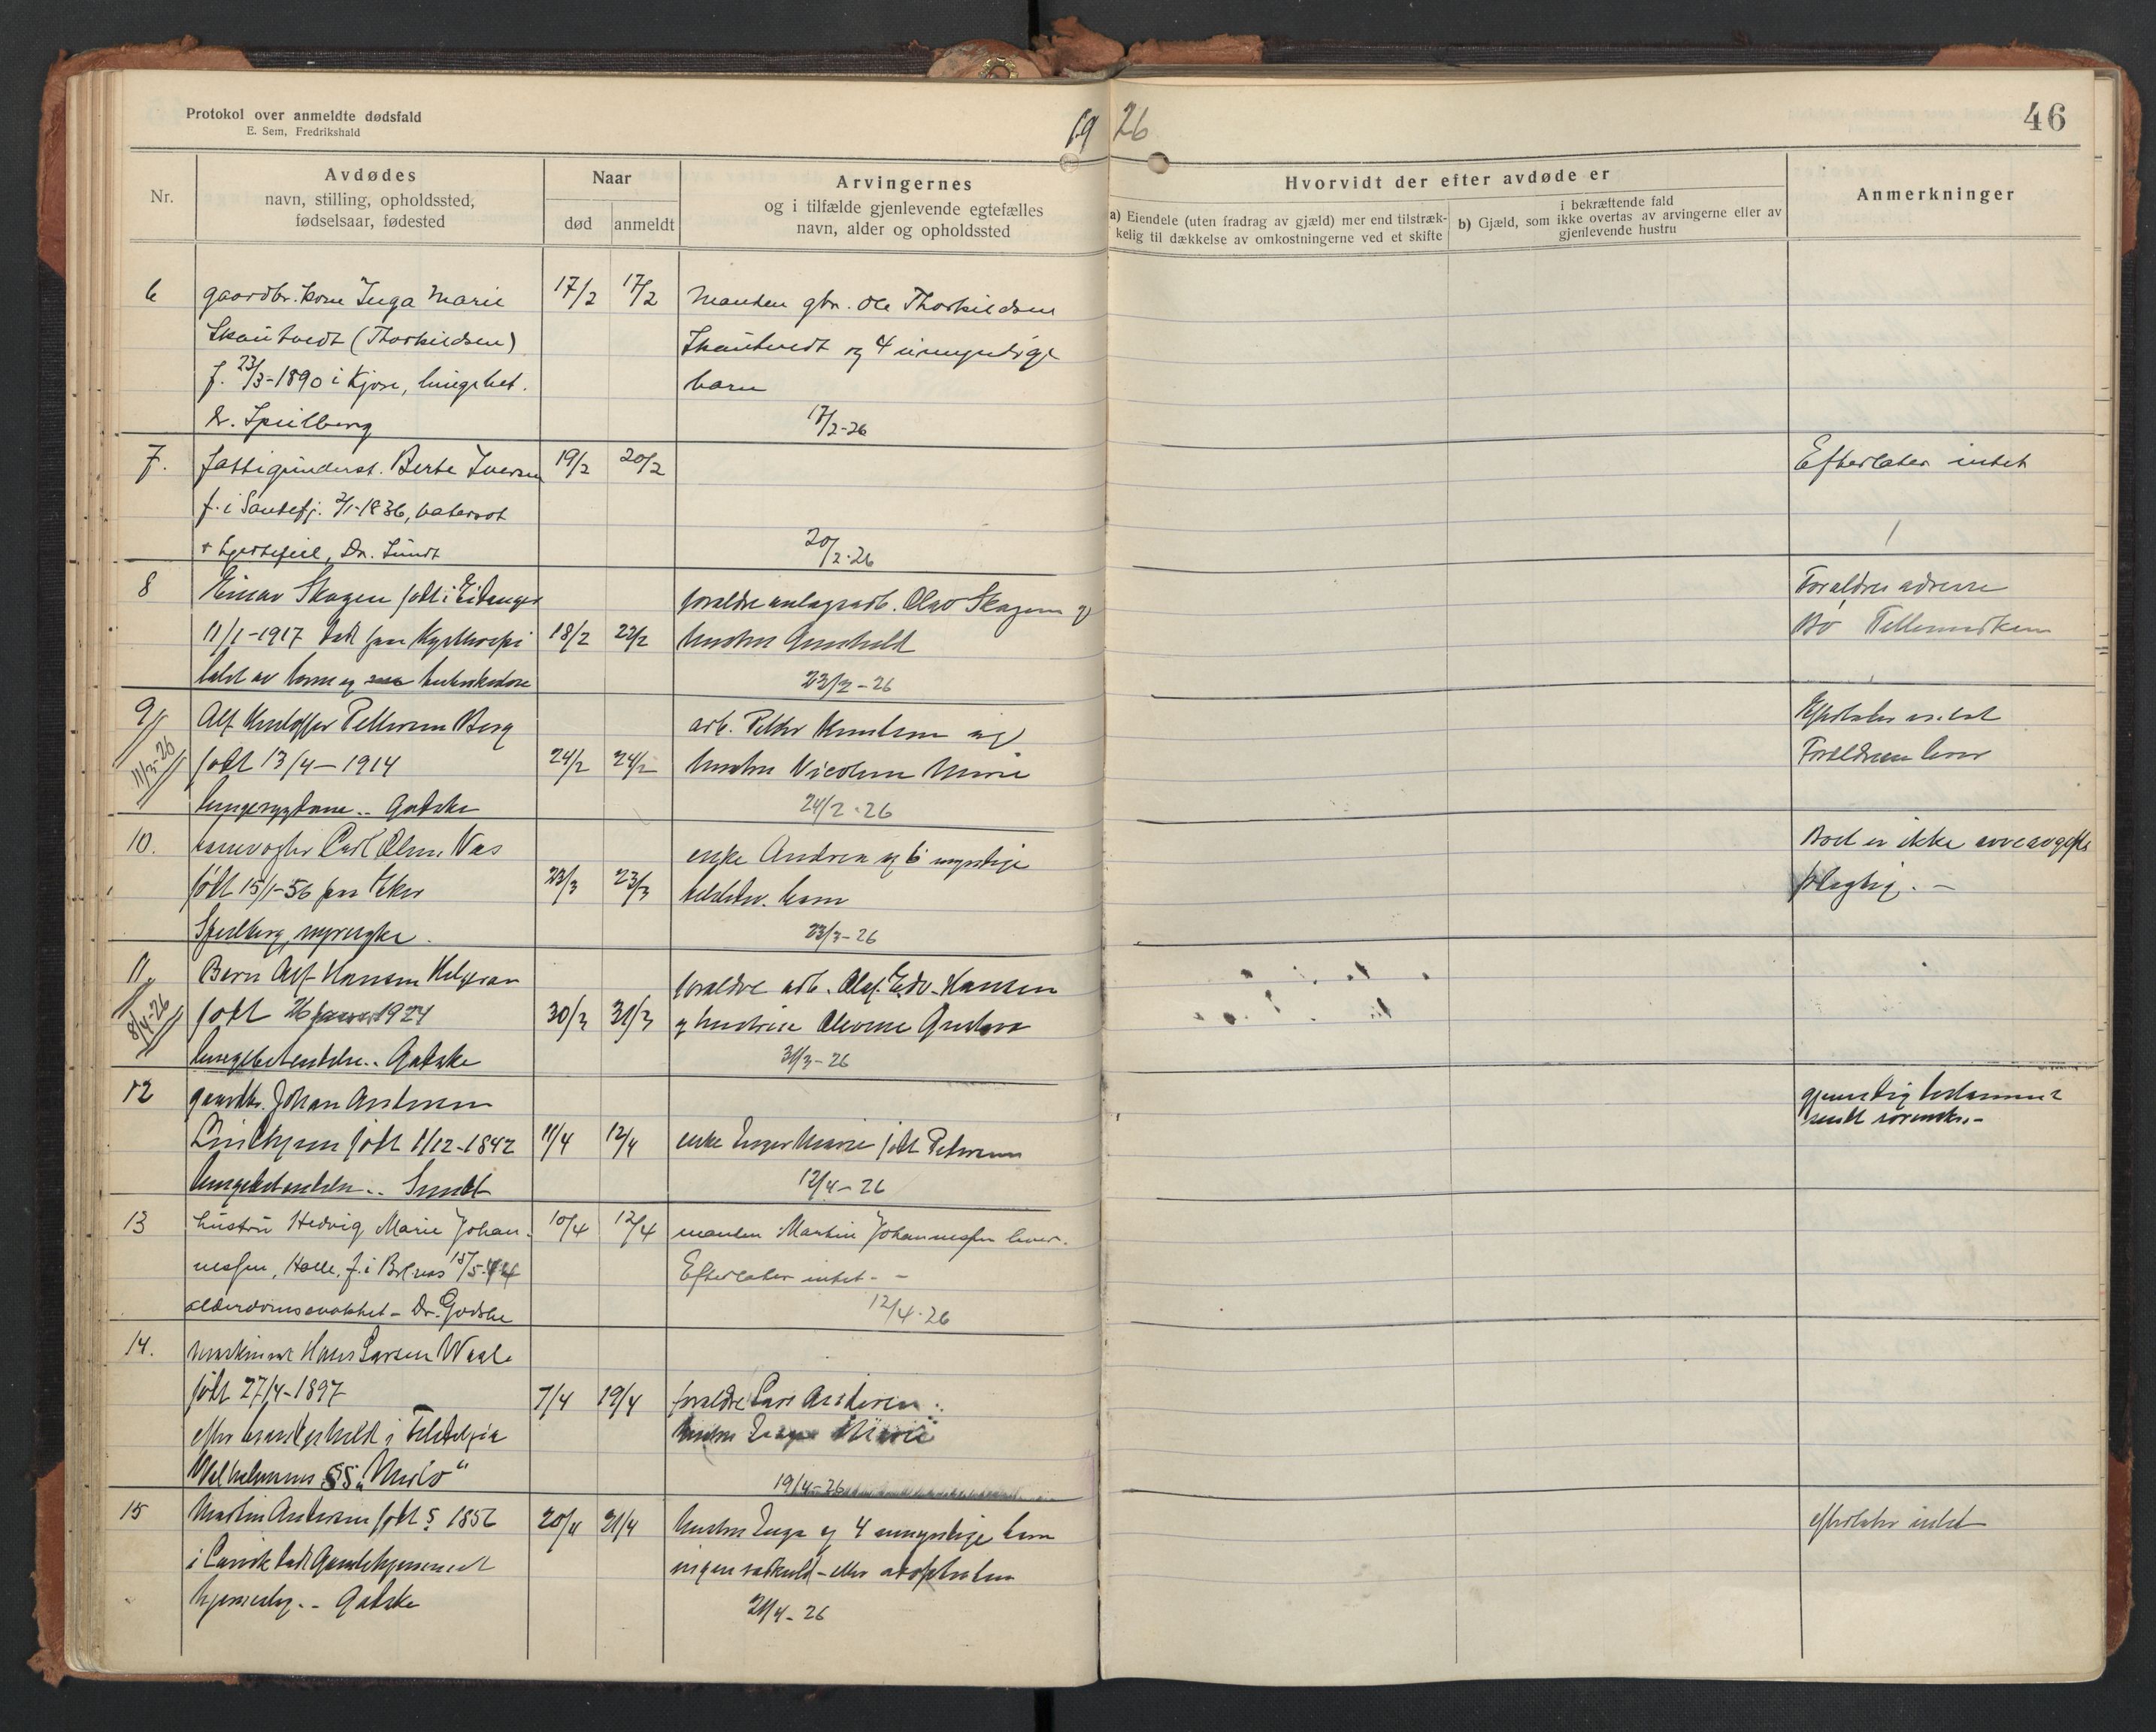 Protokol over anmeldte dødsfald
E. Sem, Fredrikshald
19 26
46
Nr.
Avdødes
navn, stilling, opholdssted,
fødselsaar, fødested
Naar
død
anmeldt
Arvingernes
og i tilfælde gjenlevende egtefælles
navn, alder og opholdssted
Hvorvidt der efter avdøde er
a) Eiendele (uten fradrag av gjæld) mer end tilstræk-
kelig til dækkelse av omkostningerne ved et skifte
i bekræftende fald
b) Gjæld, som ikke overtas av arvingerne eller av
gjenlevende hustru
Anmerkninger
6 gaardbr. kone Inga Marie 17/2 17/2 Manden gbr. Ole Thorkildsen
Skautvedt (Thorkildsen) Skautvedt og 4 umyndige
f. 23/3-1890 i Kjose, lungebet. barn
Dr. Spilberg 17/2-26
7. fattigunderst. Berte Iversen 19/2 20/2 Efterlater intet
f. i Sandefj. 2/1-1836, vatersot
+ hjertefeil, Dr. Sundt 20/2-26
8 Einar Skagen født i Eidanger forældre anlægsarb. Olav Skagen og Forældres adresse
11/1-1917 død 18/2 22/2 hustru Gunhild Bø Tellemarken
23/2-26
9 Alf Kristoffer Pettersen Berg arb. Petter Knudsen og Efterlater intet
11/3-26 født 13/4-1914 24/2 24/2 hustru Nicoline Marie Forældrene lever
lungesygdom .. Godske 24/2-26
10. Carl Olsen Næs enke Andrea og 6 myndige Boet er ikke arveavgifts
født 15/1-56 paa Eker 23/3 23/3 barn pligtig. -
Spilberg, nyresyke. 23/3-26
11 Barn Alf Hansen Helgeran forældre arb. Olaf Edv. Hansen
8/4-26 født 26 1924 30/3 31/3 og hustru Olevine Gustava
lungebetendelse .. Godske 31/3-26
12 gaardbr. Johan Andersen gjensidig testamente
født 1/12-1842 11/4 12/4 enke Inger Marie født Petersen sendt sorenskr. -
lungebetendelse .. Sundt 12/4-26
13 hustru Hedvig Marie Johan- 10/4 12/4 manden Martin Johannessen lever.
nessen, Halle, f. i Brlnæs 15/5-44 Efterlater intet. -
alderdomssvakhet - Dr. Godske 12/4-26
14. Hans Larsen Waale
født 27/4-1897 7/4 19/4 forældre Lars Andersen
efter i Filadelfia hustru Inga Marie
SS „ " 19/4-26
15 Martin Andersen født 5 1856 20/4 21/4 hustru Inga og 4 umyndige barn efterlater intet
i Larvik død Gamlehjemmet ingen særkuld - eller adoptivbarn
.- Godske 21/4-26